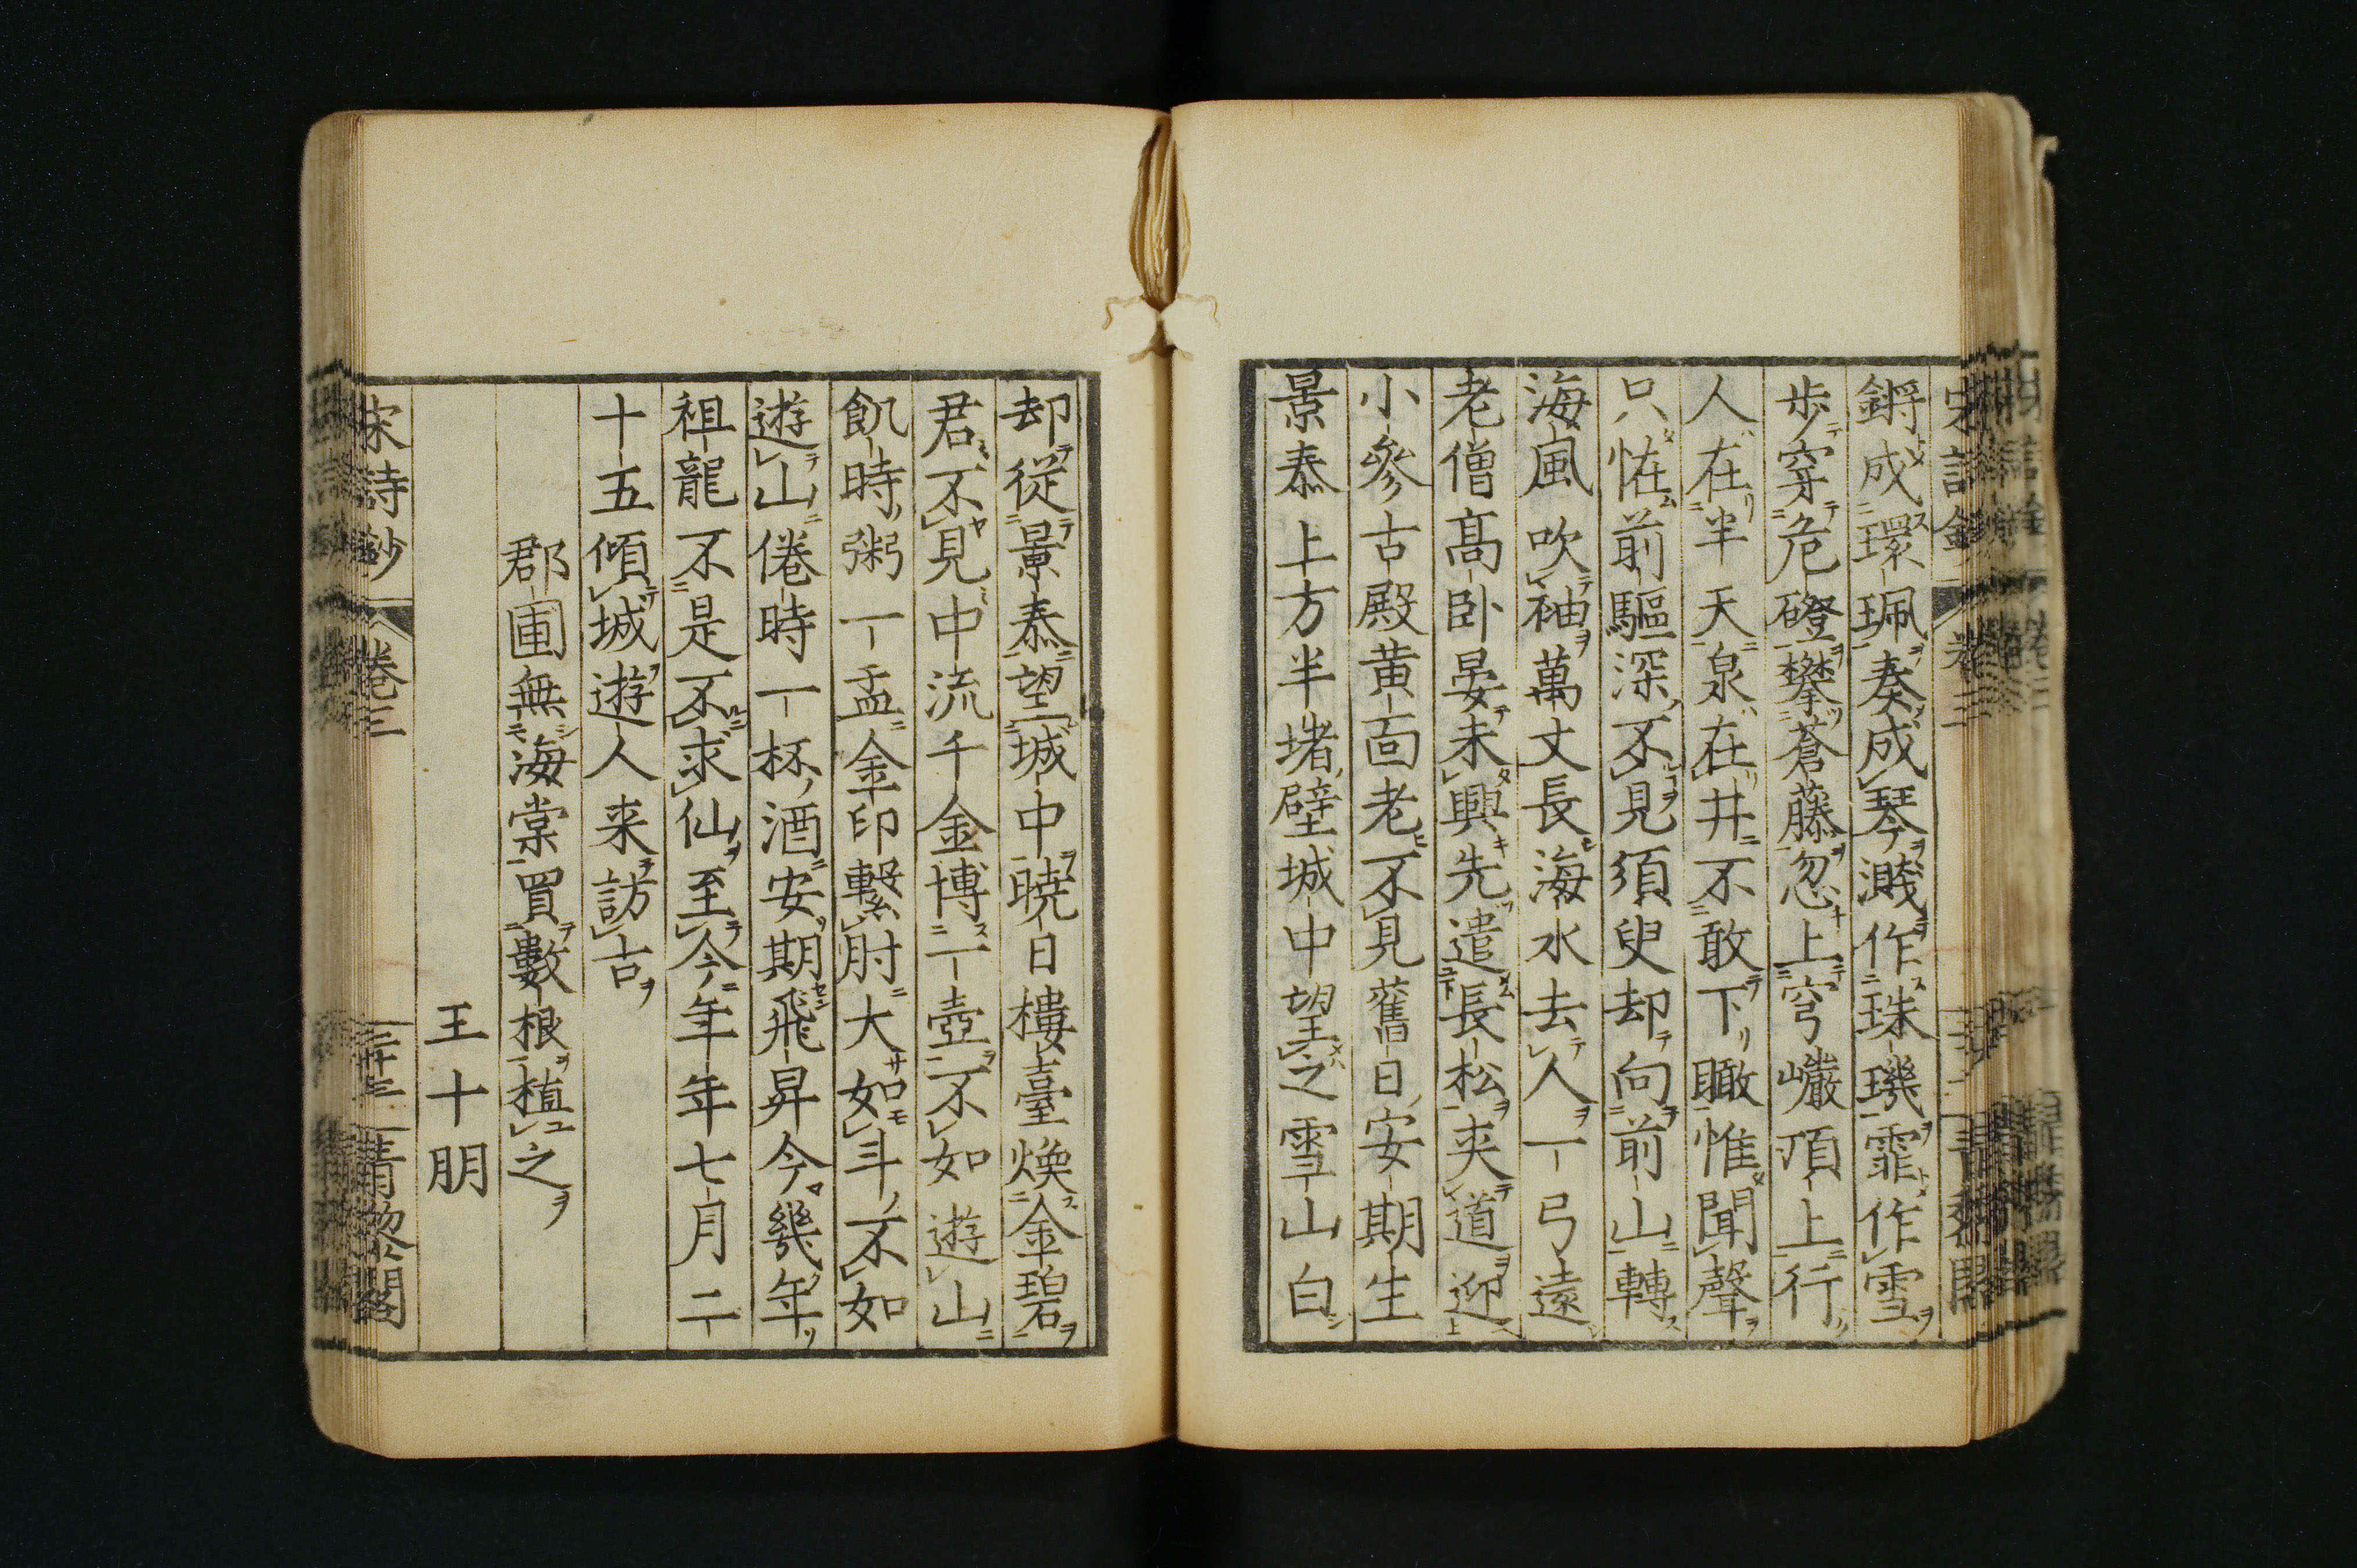 鏘成環珮奏成琴濺作珠璣霏作雪
歩穿危磴攀蒼藤忽上穹巗頂上行
人在半天泉在井不敢下瞰惟聞聲
只恠前驅深不見須臾却向前山轉
海風吹袖萬丈長海水去人一弓遠
老僧高卧晏未興先遣長松夾道迎
小參古殿黄面老不見舊日安期生
景泰上方半堵壁城中望之雪山白
却從景泰望城中曉日樓臺煥金碧
君不見中流千金博一壺不如遊山
飢時粥一盂金印繫肘大如斗不如
遊山倦時一杯酒安期飛昇今幾年
祖龍不是不求仙至今年年七月二
十五傾城遊人来訪古
郡圃無海棠買數根植之
王十朋
宋詩鈔
卷三